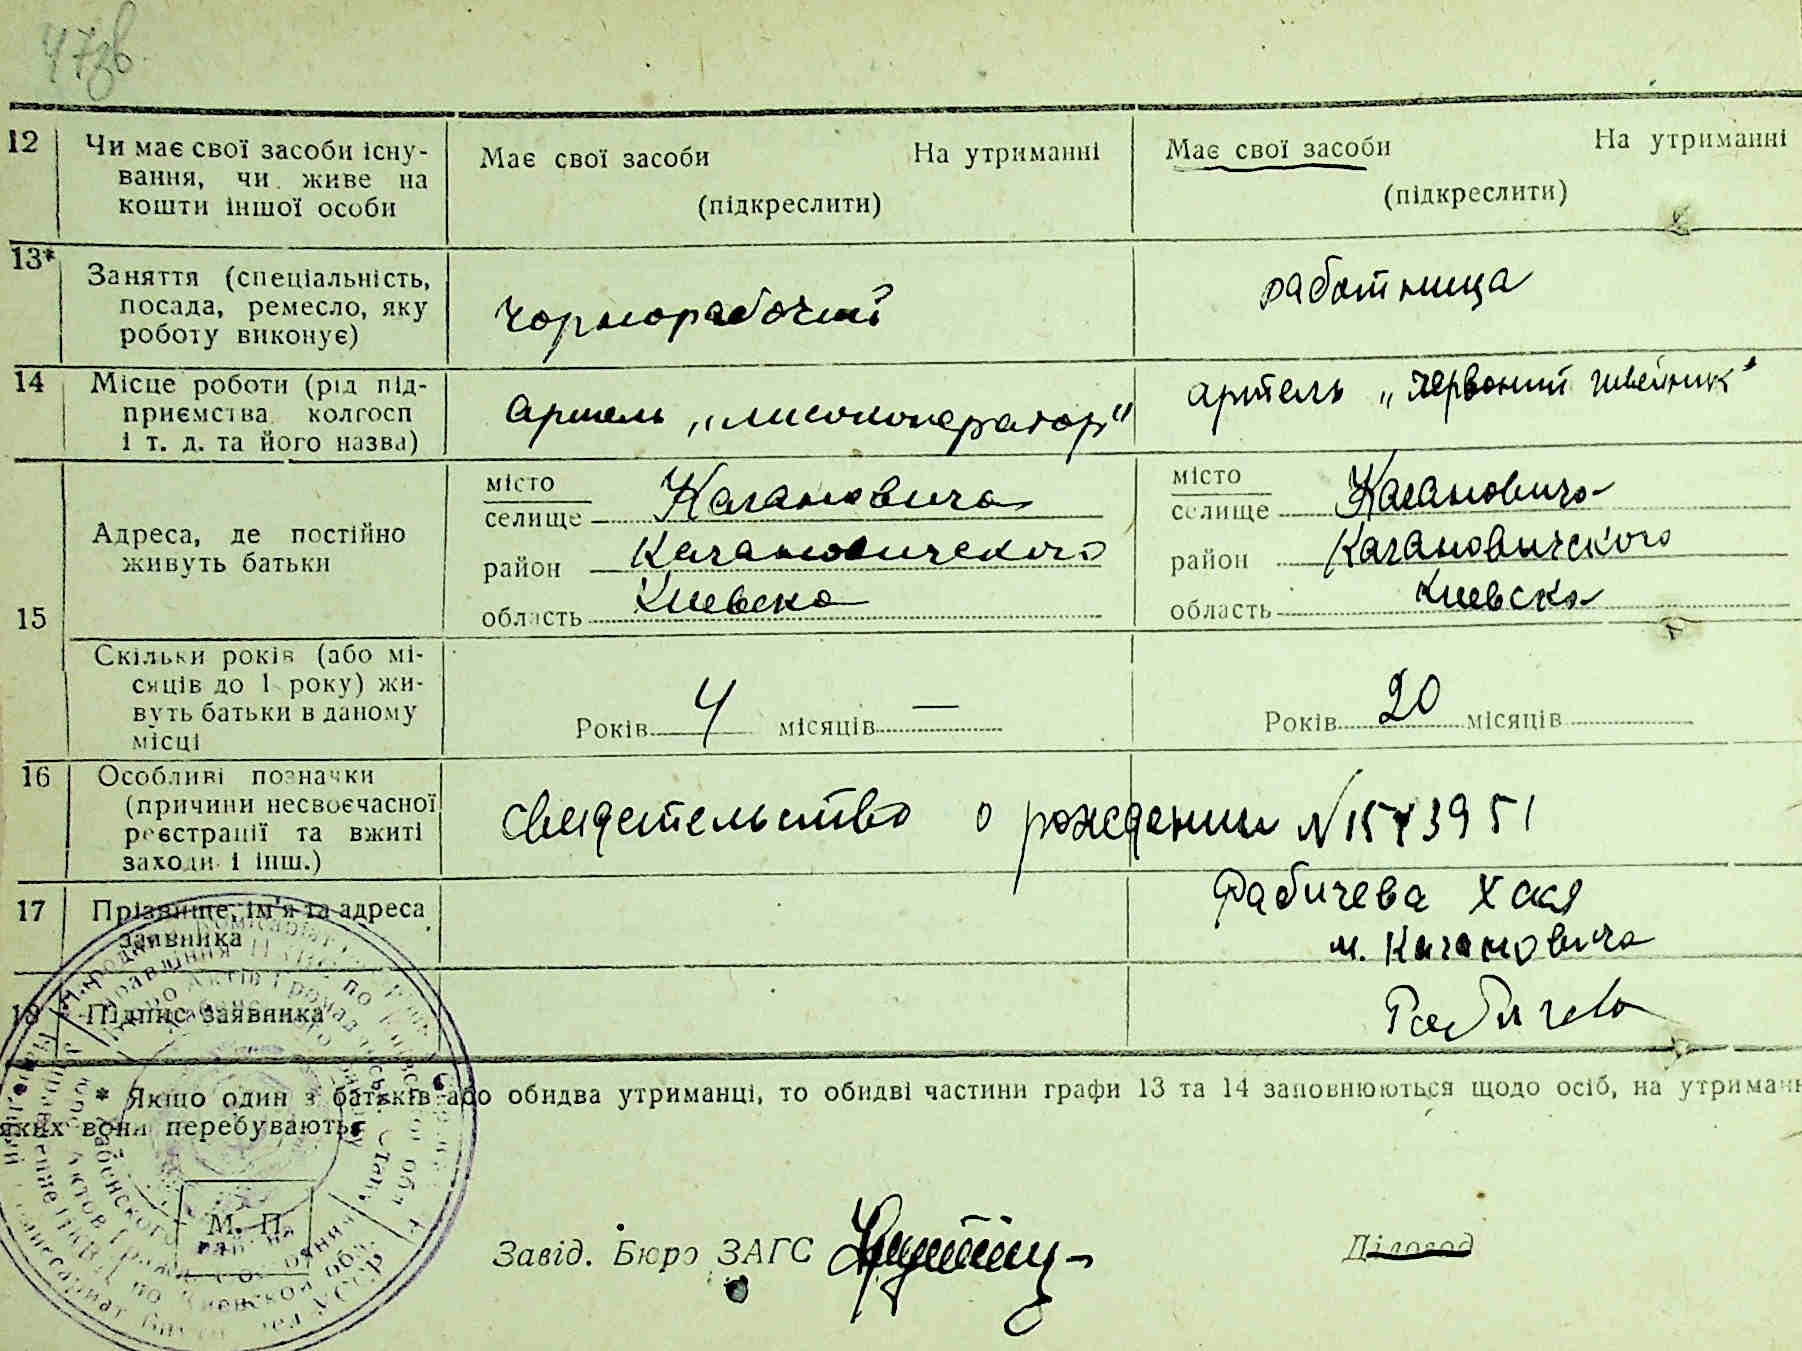 47зв.
12 Чи має свої засоби існу-
вання, чи живе на
кошти іншої особи
Має свої засоби На утриманні
(підкреслити)
Має свої засоби На утриманні
(підкреслити)
13*
Заняття (спеціальність,
посада, ремесло, яку
роботу виконує)
Чорнорабочий
работница
14 Місце роботи (рід під-
приємства колгосп
і т. д. та його назва)
артель
артель „червоний швейник"
15
Адреса, де постійно
живуть батьки
місто
селище Кагановича
район Кагановичского
область Киевска
місто
селище Кагановича
район Кагановичского
область Киевска
Скільки років (або мі-
сяців до 1 року) жи-
вуть батьки в даному
місці
Років 4 місяців —
Років 20 місяців
16 Особливі позначки
(причини несвоєчасної
реєстрації та вжиті
заходи і інш.)
свидетельство о рождении N
17 Прізвище, ім'я та адреса
заявника
Рабичева Хая
м. Кагановича
18 Підпис заявника
Рабичева
* Якщо один з батьків або обидва утриманці, то обидві частини графи 13 та 14 заповнюються щодо осіб, на утриманні
яких вони перебувають.
М. П.
Завід. Бюро ЗАГС
Діловод